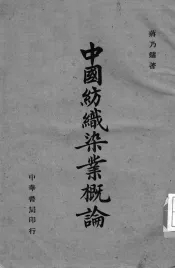 蔣乃鏞著
中國紡織染業概論
中華書局印行